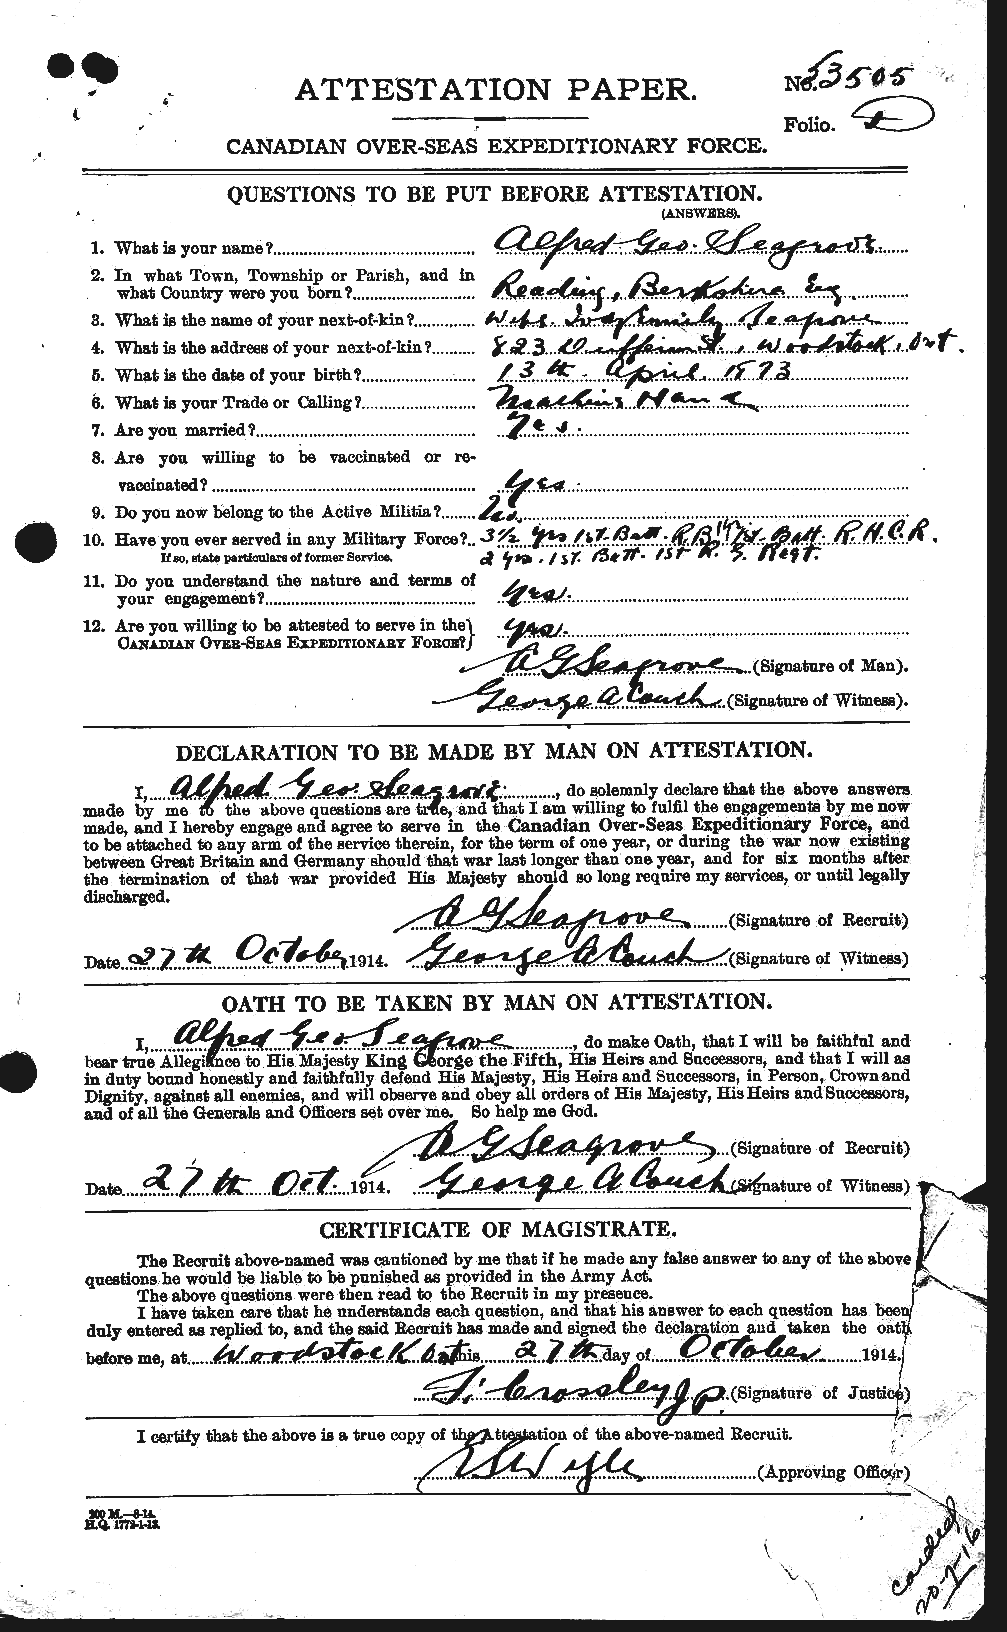 ATTESTATION PAPER.
No. 53505
Folio.
CANADIAN OVER-SEAS EXPEDITIONARY FORCE.
QUESTIONS TO BE PUT BEFORE ATTESTATION.
(ANSWERS).
1. What is your name? Alfred Geo. Seagrove
2. In what Town, Township or Parish, and in
what Country were you born? Reading, Berkshire Eng
3. What is the name of your next-of-kin? Wife Emily Seagrove
4. What is the address of your next-of-kin? 823 Dufferin St., Woodstock, Ont.
5. What is the date of your birth? 13th April, 1873
6. What is your Trade or Calling? Machine Hand
7. Are you married? Yes.
8. Are you willing to be vaccinated or re-
vaccinated? Yes
9. Do you now belong to the Active Militia?
10. Have you ever served in any Military Force? 3½ yrs 1st. Batt. R.B. Batt. R.H.C.R.
If so, state particulars of former Service. 2 yrs. 1st. Batt. 1st Regt.
11. Do you understand the nature and terms of
your engagement? Yes.
12. Are you willing to be attested to serve in the
CANADIAN OVER-SEAS EXPEDITIONARY FORCE? Yes.
A G Seagrove (Signature of Man).
George A Couch (Signature of Witness).
DECLARATION TO BE MADE BY MAN ON ATTESTATION.
I, Alfred Geo. Seagrove, do solemnly declare that the above answers
made by me to the above questions are true, and that I am willing to fulfil the engagements by me now
made, and I hereby engage and agree to serve in the Canadian Over-Seas Expeditionary Force, and
to be attached to any arm of the service therein, for the term of one year, or during the war now existing
between Great Britain and Germany should that war last longer than one year, and for six months after
the termination of that war provided His Majesty should so long require my services, or until legally
discharged.
A G Seagrove (Signature of Recruit)
Date 27th October 1914. George A Couch (Signature of Witness)
OATH TO BE TAKEN BY MAN ON ATTESTATION.
I, Alfred Geo Seagrove, do make Oath, that I will be faithful and
bear true Allegiance to His Majesty King George the Fifth, His Heirs and Successors, and that I will as
in duty bound honestly and faithfully defend His Majesty, His Heirs and Successors, in Person, Crown and
Dignity, against all enemies, and will observe and obey all orders of His Majesty, His Heirs and Successors,
and of all the Generals and Officers set over me. So help me God.
A G Seagrove (Signature of Recruit)
Date 27th Oct. 1914. George A Couch (Signature of Witness)
CERTIFICATE OF MAGISTRATE.
The Recruit above-named was cautioned by me that if he made any false answer to any of the above
questions he would be liable to be punished as provided in the Army Act.
The above questions were then read to the Recruit in my presence.
I have taken care that he understands each question, and that his answer to each question has been
duly entered as replied to, and the said Recruit has made and signed the declaration and taken the oath
before me, at Woodstock Ont this 27th day of October 1914.
Crossley J.P. (Signature of Justice)
I certify that the above is a true copy of the Attestation of the above-named Recruit.
(Approving Officer)
200 M.—8-14.
H.Q. 1772-1-13.
carded